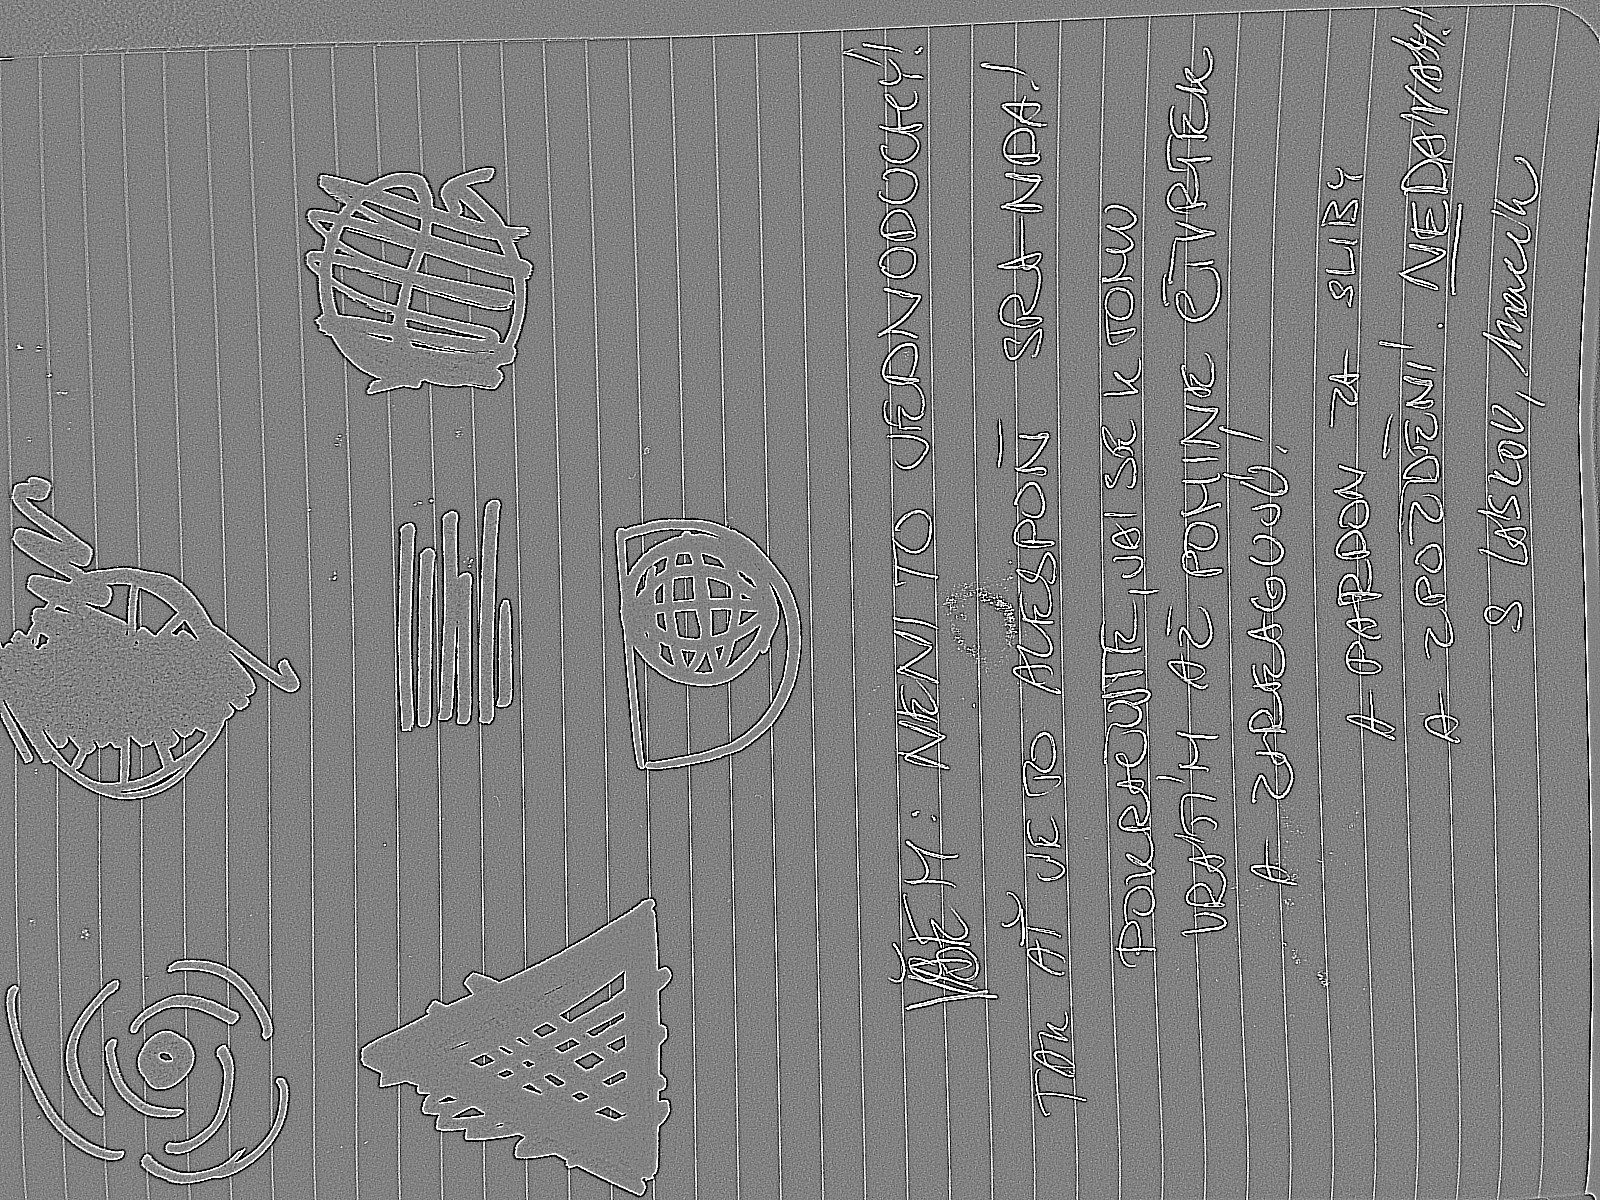 M: NENÍ TO JEDNODUCHÝ!
TAK AŤ JE TO ALESPOŇ SRANDA!
POKRAČUJTE, JÁ SE K TOMU
VRÁTÍM AŽ POMINE ČTVRTEK
A ZAREAGUJU!
A PARDON ZA SLIBY
A ZPOŽDĚNÍ. NEDÁVÁM!
S LÁSKOU,